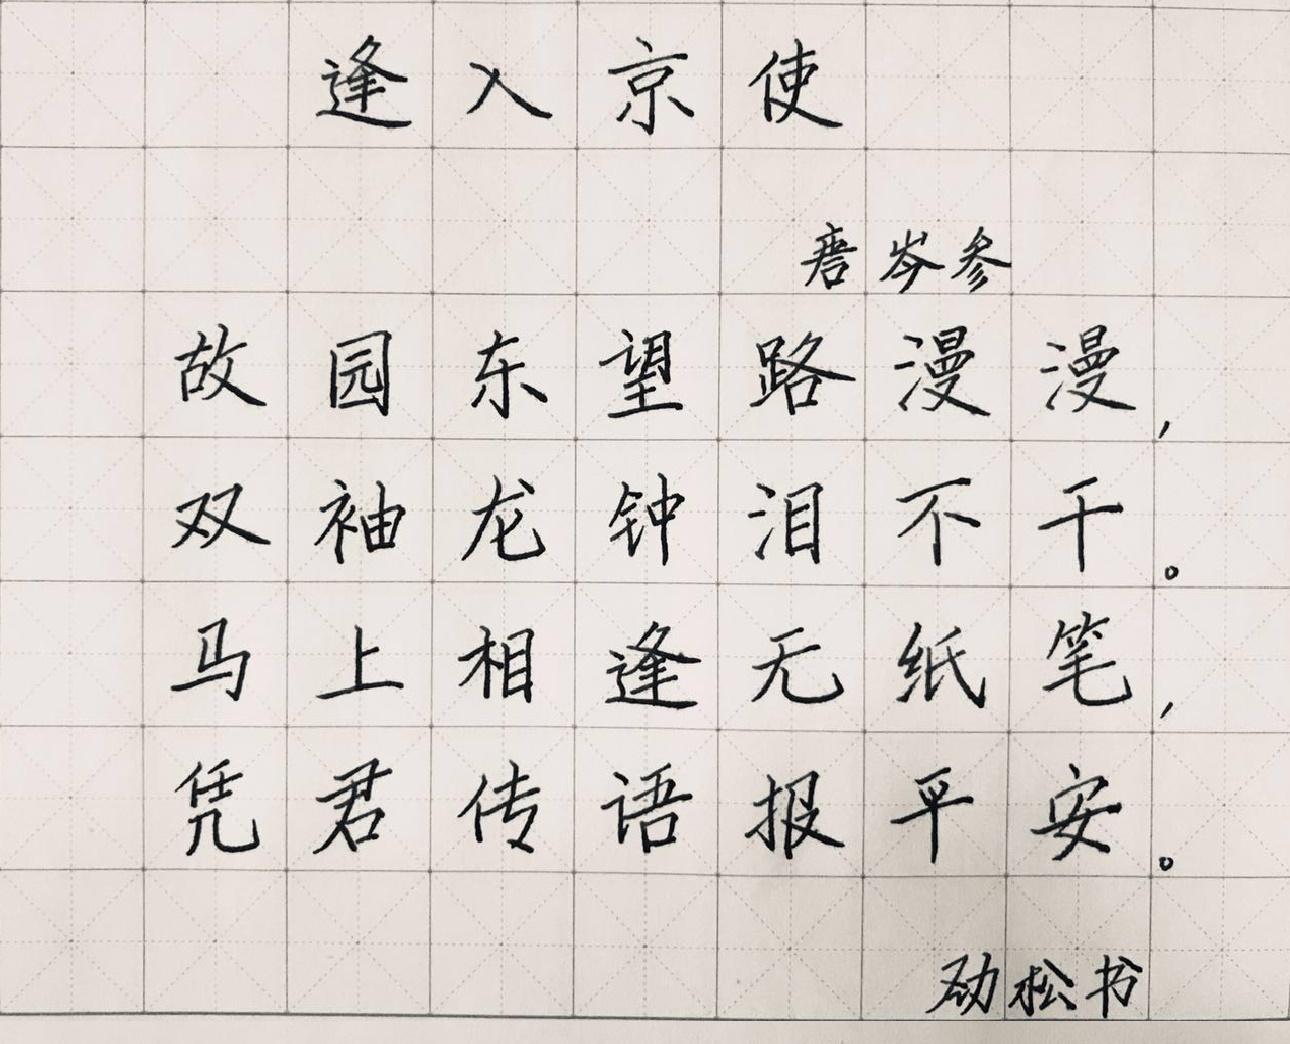 逢入京使
唐岑参
故园东望路漫漫，
双袖龙钟泪不干。
马上相逢无纸笔，
凭君传语报平安。
劲松书